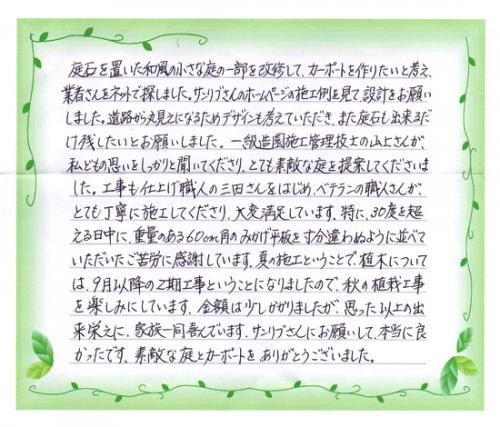 庭石を置いた和風の小さな庭の一部を改修して、カーポートを作りたいと考え、
業者さんをネットで探しました。サンリブさんのホームページの施工例を見て、設計をお願い
しました。道路から丸見えになるためデザインも考えていただき、また庭石も出来るだ
け残したいとお願いしました。一級造園施工管理技士の山上さんが、
私どもの思いをしっかりと聞いてくださり、とても素敵な庭を提案してくださいま
した。工事も仕上げ職人の三田さんをはじめ、ベテランの職人さんが、
とても丁寧に施工してくださり、大変満足しています。特に、30度を超
える日中に、重量のある60cm角のみかげ平板を寸分違わぬように並べて
いただいたご苦労に感謝しています。夏の施工ということで植木について
は、9月以降の2期工事ということになりましたので、秋の植栽工事
を楽しみにしています。金額は少しかかりましたが、思った以上の出
来栄えに、家族一同喜んでいます。サンリブさんにお願いして、本当に良
かったです。素敵な庭とカーポートをありがとうございました。